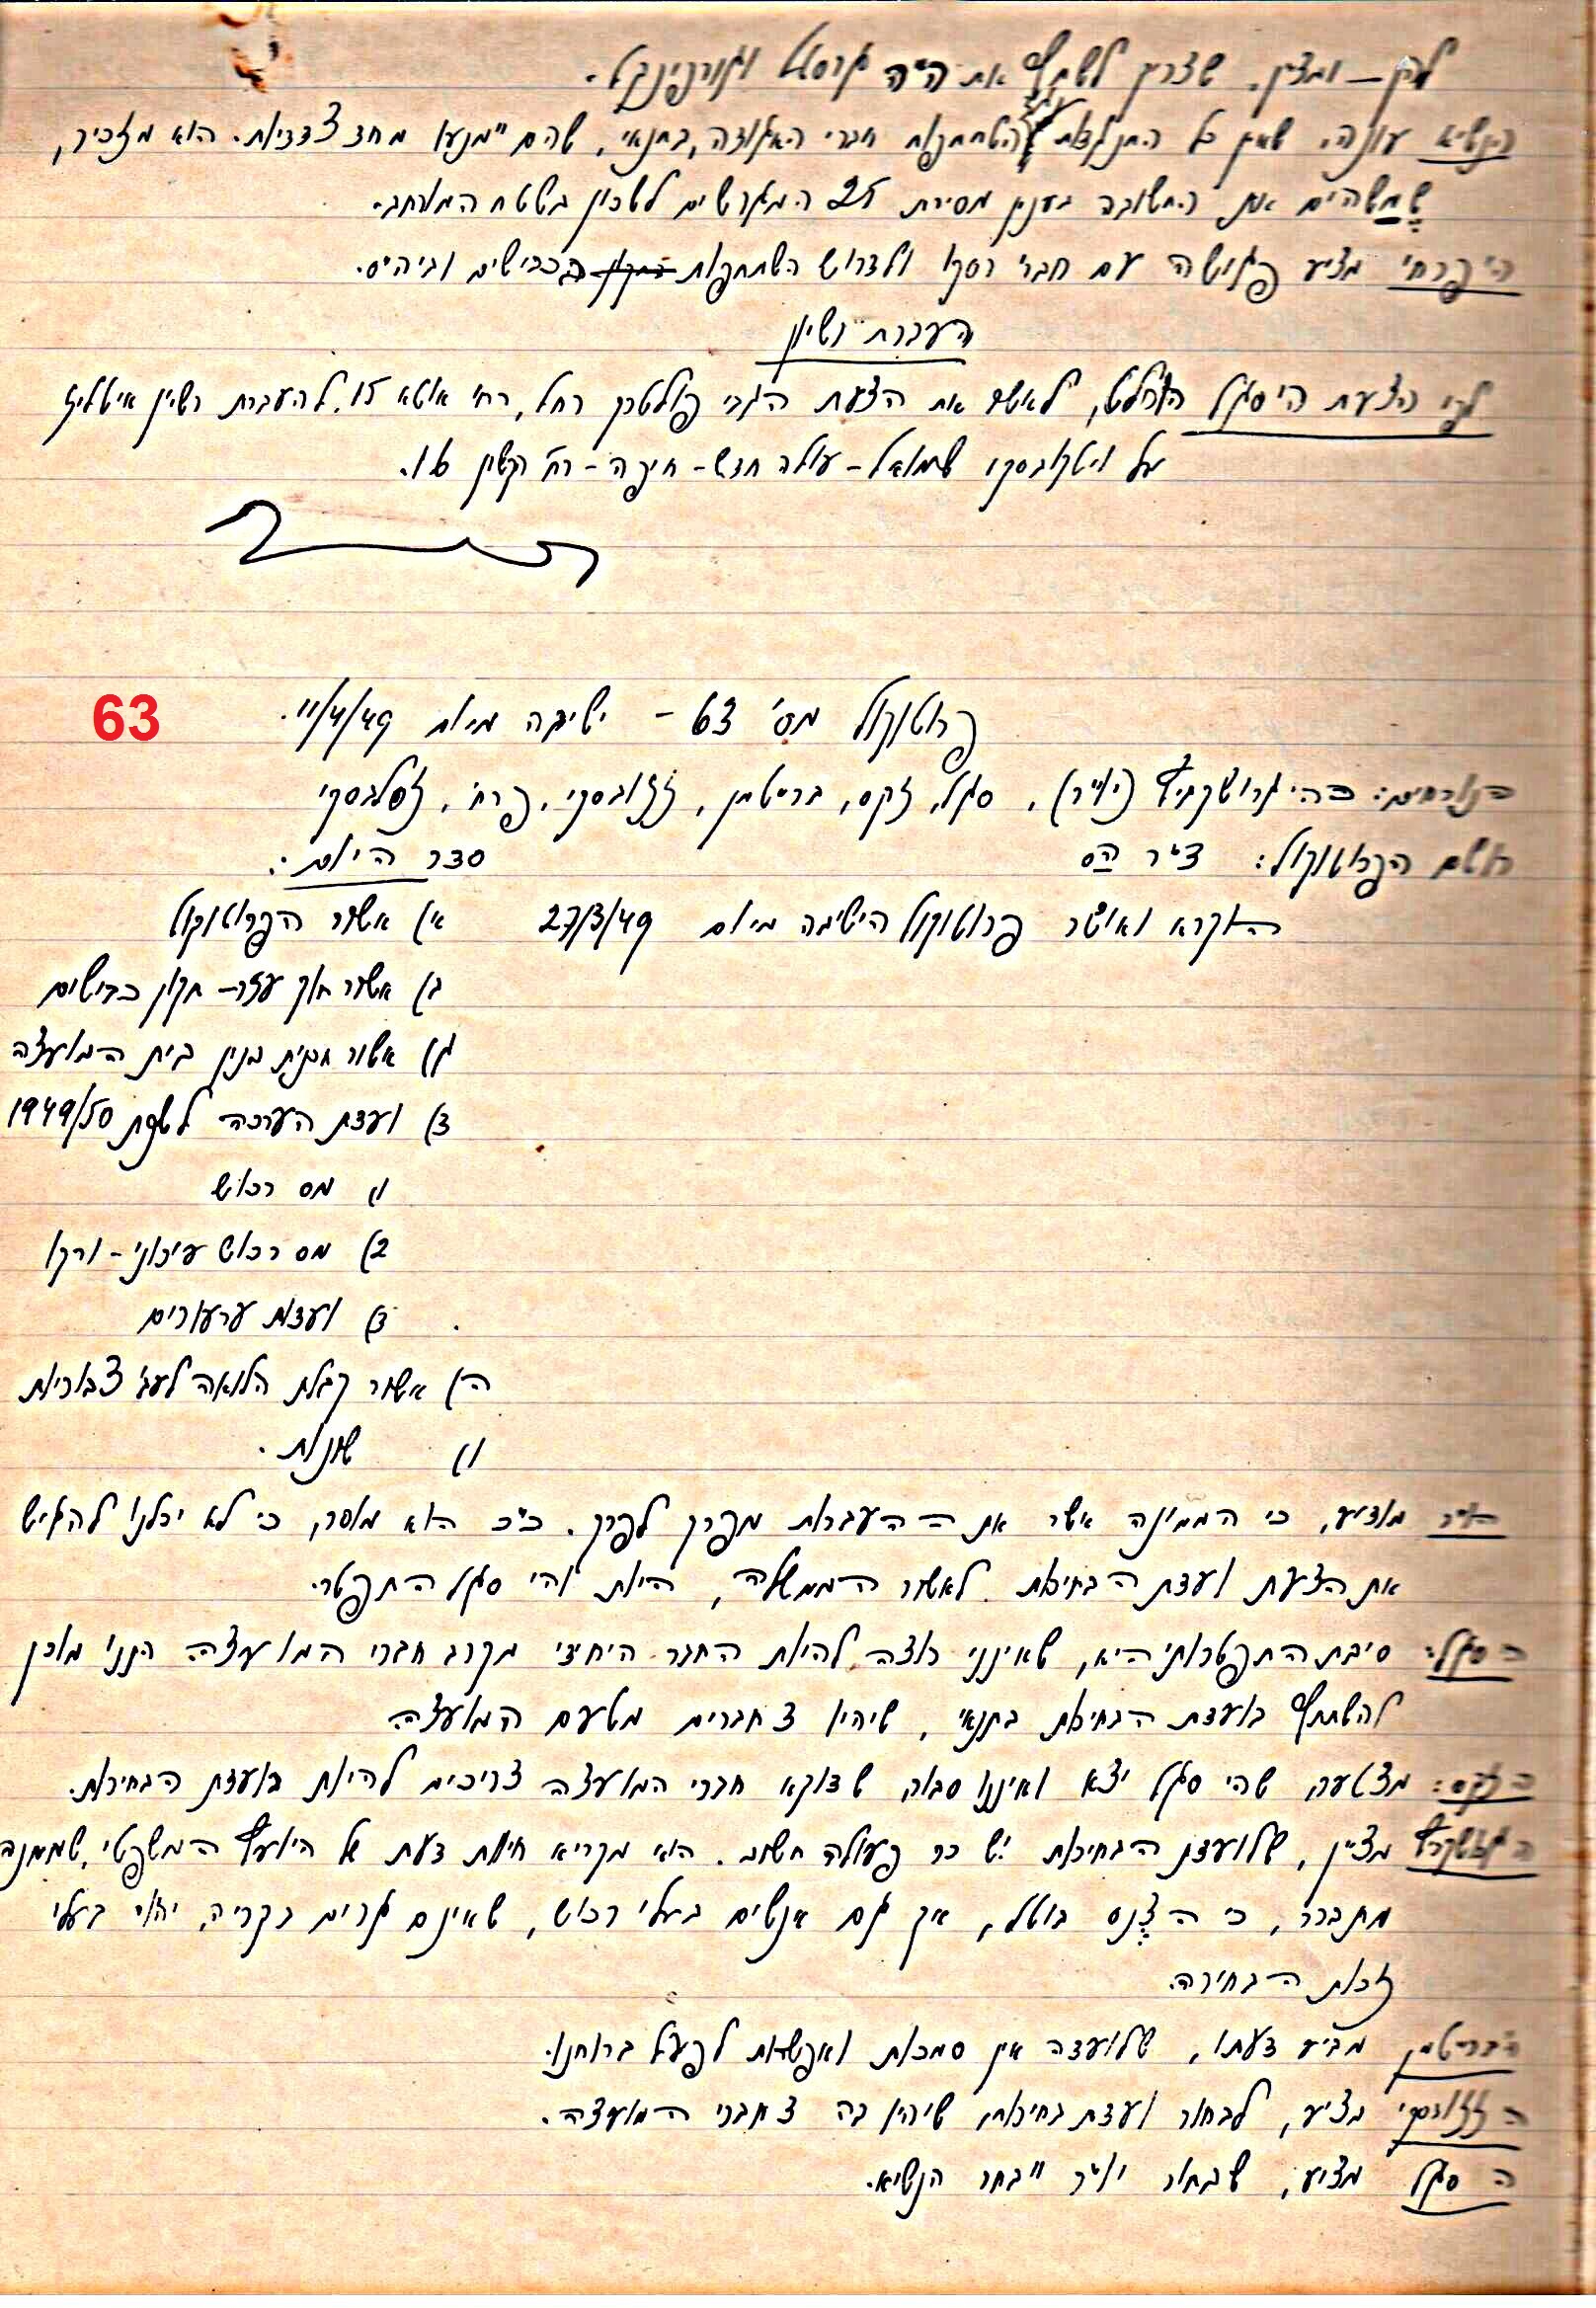 לכן – ומציין, שצריך לשתף את ה"ה גרסטל וגורפינקל.
הנשיא עונה, שאין כל התנגדות להשתתפות חברי האגודה, בתנאי, שהם יימנעו מחד צדדיות. הוא מזכיר,
שמשהים את התשובה בענין מסירת 25 המגרשים לשכון בשטח המורחב.
ה' פרחי מציע פגישה עם חברי רסקו ולדרוש השתתפות בכבישים וביה"ס.
העברת רשיון
לפי הצעת ה' סגל הוחלט, לאשר את הצעת הגב' פולטרק רחל, רח' אוטא 15, להעברת רשיון איטליז
על ויטקובסקי שמואל – עולה חדש – חיפה – רח' קשון 16.
63
פרוטוקול מס' 63 – ישיבה מיום 11/4/49.
הנוכחים: ה"ה גרושקביץ (יו"ר), סגל, זקס, ברייטמן, זזובסקי, פרחי, זסלבסקי
רושם הפרוטוקול: ד"ר הס
סדר היום:
הוקרא ואושר פרוטוקול הישיבה מיום 27/3/49
א) אשור הפרוטוקול
ב) אשור חוק עזר – תקון כבישים
ג) אשור תכנית בנין בית המועצה
ד) ועדת הערכה לשנת 1949/50
1) מס רכוש
2) מס רכוש עירוני – ורקו
3) ועדת ערעורים
ה) אשור קבלת הלואה לעב' צבוריות
ו) שונות.
היו"ר מודיע, כי הממונה אשר את ההעברות מפרק לפרק. כ"כ הוא מוסר, כי לא יכלנו להגיש
את הצעת ועדת הבחירות לאשור הממשלה, היות וה' סגל התפטר.
ה סגל: סיבת התפטרותי היא, שאינני רוצה להיות החבר היחידי מקרב חברי המועצה הנני מוכן
להשתתף בועדת הבחירות בתנאי, שיהיו 3 חברים מטעם המועצה
ה זקס: מצטער, שה' סגל יצא ואיננו סבור, שדוקא חברי המועצה צריכים להיות בועדת הבחירות.
ה גרושקביץ מציין, שלועדת הבחירות יש כבר פעולה חשוב. הוא מקריא חוות דעת של היועץ המשפטי, שממנה
מתברר, כי הצנז בוטל, אך גם אנשים בעלי רכוש, שאינם גרים בקריה, יהיו בעלי
זכות הבחירה.
ה ברייטמן מביע דעתו, שלועדה אין סמכות ואפשרות לפעול ברוחנו.
ה זזובסקי מציע, לבחור ועדת בחירות, שיהיו בה 3 חברי המועצה.
ה סגל מציע, שבתור יו"ר ייבחר הנשיא.